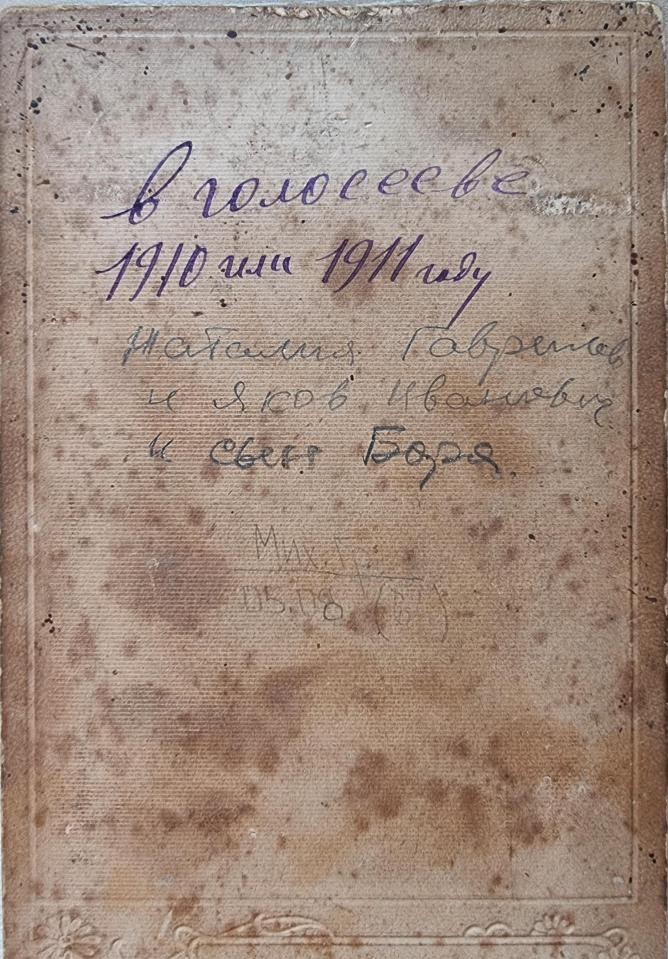 в голосееве
1910 или 1911 году
Наталия Гаврилов
и Яков Иванович
и сын Боря.
Мих. Г.